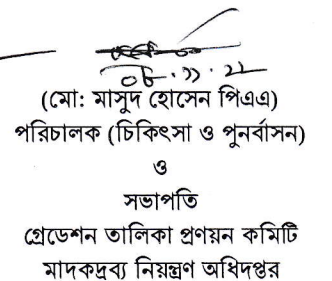 ০৮.১১.২২
(মো: মাসুদ হোসেন পিএএ)
পরিচালক (চিকিৎসা ও পুনর্বাসন)
ও
সভাপতি
গ্রেডেশন তালিকা প্রণয়ন কমিটি
মাদকদ্রব্য নিয়ন্ত্রণ অধিদপ্তর